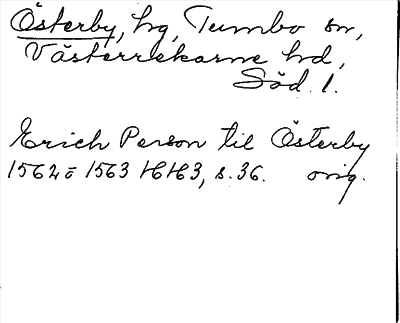 Österby, hg, Tumbo sn,
Västerrekarne hd,
Söd. l.
Erich Person til Österby
1562 o 1563 HH3, s. 36. orig.